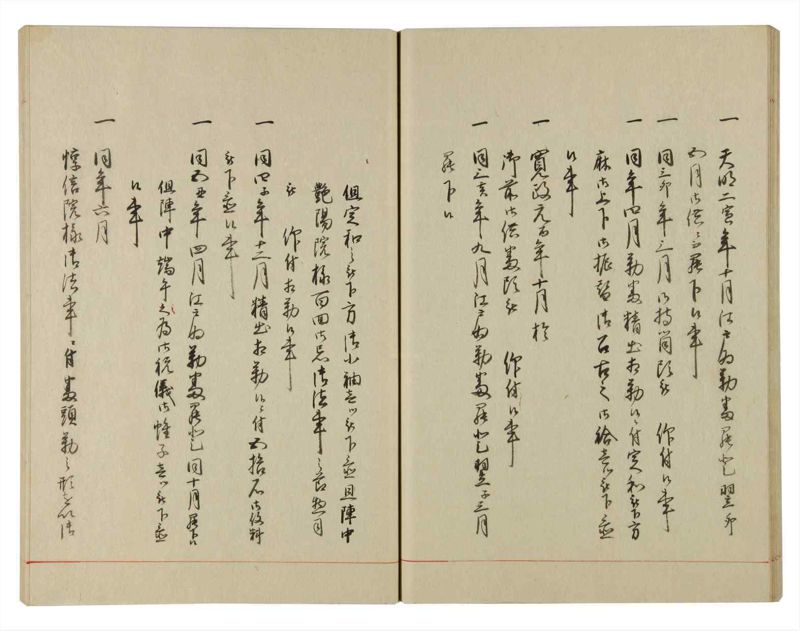 一 天明二寅年十月江戸為勤番罷登翌卯
四月御供ニ而罷下候事
一 同三卯年三月御持筒頭被 仰付候事
一 同年四月勤番精出相勤候ニ付定和被下方
麻御上下御振替御召古之御給壱被下置
候事
一 寛政元酉年十月於
御前御供番頭被 仰付候事
一 同三亥年九月江戸為勤番罷登翌子三月
罷下候
但定和之被下方御小袖壱ツ被下置且陣中
艶陽院様百回御忌御法事之節惣司
被 仰付相勤候事
一 同四子年十二月精出相勤候ニ付五拾石御役料
被下置候事
一 同五丑年四月江戸為勤番罷登同十月罷下候
但陣中端午之為御祝儀御帷子壱ツ被下置
候事
一 同年六月
惇信院様御法事ニ付番頭勤之形を以御